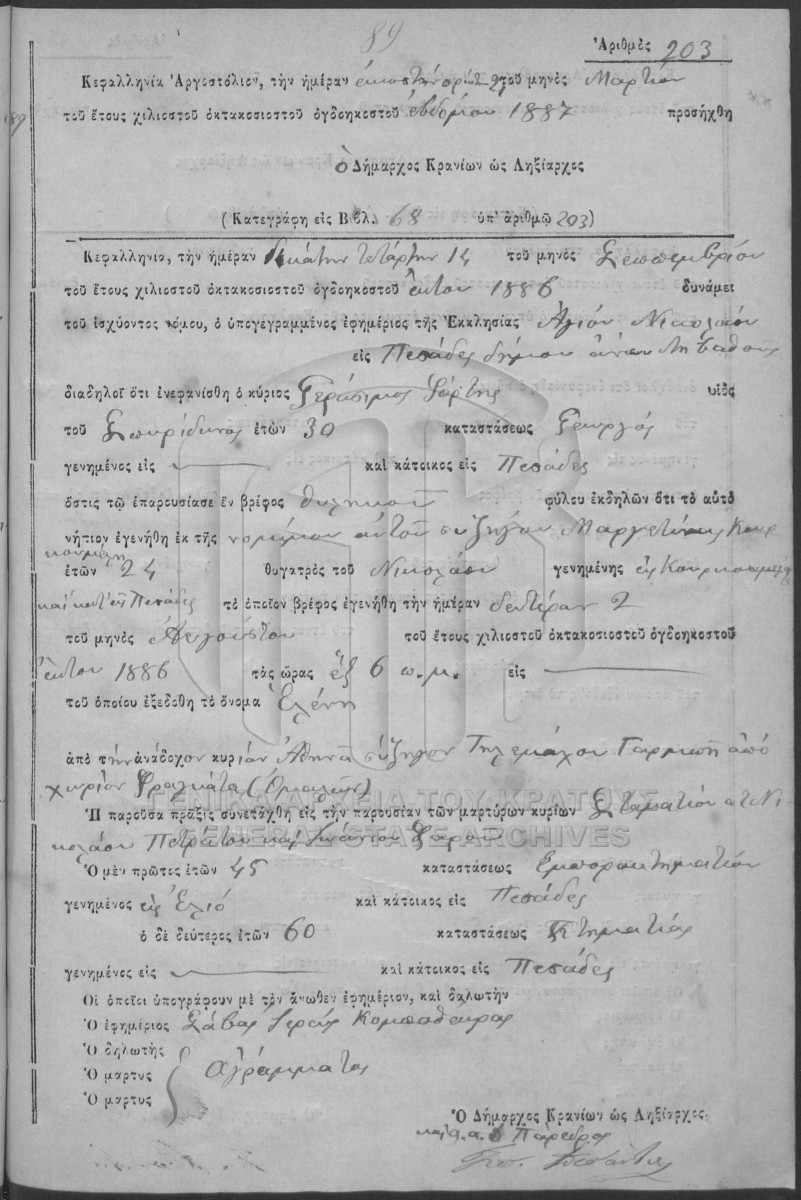 89
Ἀριθμὸς 203
Κεφαλληνία Ἀργοστόλιον, τὴν ἡμέραν εἰκοστὴν 2 τοῦ μηνὸς Μαρτίου
τοῦ ἔτους χιλιοστοῦ ὀκτακοσιοστοῦ ὀγδοηκοστοῦ ἑβδόμου 1887 προσήχθη
ὁ Δήμαρχος Κρανίων ὡς Ληξίαρχος
(Κατεγράφη εἰς Βιβλ. 68 ὑπ' ἀριθμῷ 203)
Κεφαλληνία, τὴν ἡμέραν δεκάτην τετάρτην 14 τοῦ μηνὸς Σεπτεμβρίου
τοῦ ἔτους χιλιοστοῦ ὀκτακοσιοστοῦ ὀγδοηκοστοῦ ἕκτου 1886 δυνάμει
τοῦ ἰσχύοντος νόμου, ὁ ὑπογεγραμμένος ἐφημέριος τῆς Ἐκκλησίας Ἁγίου Νικολάου
εἰς Πεσάδες δήμου
διαδηλοῖ ὅτι ἐνεφανίσθη ὁ κύριος Γεράσιμος υἱὸς
τοῦ Σπυρίδωνος ἐτῶν 30 καταστάσεως Γεωργός
γενημένος εἰς — καὶ κάτοικος εἰς Πεσάδες
ὅστις τῷ ἐπαρουσίασε ἓν βρέφος θηλυκοῦ φύλου ἐκδηλῶν ὅτι τὸ αὐτὸ
νήπιον ἐγενήθη ἐκ τῆς νομίμου αὐτοῦ συζύγου Μαργετίνας Κουρ
κουμελη
ἐτῶν 24 θυγατρὸς τοῦ Νικολάου γενημένης εἰς Κουρκουμελάτα
καὶ κατ. εἰς Πεσάδες τὸ ὁποῖον βρέφος ἐγενήθη τὴν ἡμέραν δευτέραν 2
τοῦ μηνὸς Αὐγούστου τοῦ ἔτους χιλιοστοῦ ὀκτακοσιοστοῦ ὀγδοηκοστοῦ
ἕκτου 1886 τὰς ὥρας ἓξ 6 π.μ. εἰς —
τοῦ ὁποίου ἐξεδόθη τὸ ὄνομα Ἑλένη
ἀπὸ τὴν ἀνάδοχον κυρίαν Ἀθηνᾶ σύζυγον Τηλεμάχου ἀπὸ
χωρίον Φραγκάτα (Ὁμαλῶν)
Ἡ παροῦσα πρᾶξις συνετάχθη εἰς τὴν παρουσίαν τῶν μαρτύρων κυρίων Σταματίου Νι
κολάου Πετράτου καὶ
Ὁ μὲν πρῶτος ἐτῶν 45 καταστάσεως Ἐμποροκτηματίου
γενημένος εἰς Ἐλιό καὶ κάτοικος εἰς Πεσάδες
ὁ δὲ δεύτερος ἐτῶν 60 καταστάσεως Κτηματίας
γενημένος εἰς — καὶ κάτοικος εἰς Πεσάδες
Οἱ ὁποῖοι ὑπογράφουν μὲ τὸν ἄνωθεν ἐφημέριον, καὶ δηλωτὴν
Ὁ ἐφημέριος Σάβας Ἱερεὺς Κομποθέκρας
Ὁ δηλωτὴς
Ὁ μάρτυς Ἀγράμματος
Ὁ μάρτυς
Ὁ Δήμαρχος Κρανίων ὡς Ληξίαρχος
Πάρεδρος
ΓΕΝΙΚΑ ΑΡΧΕΙΑ ΤΟΥ ΚΡΑΤΟΥΣ
GENERAL STATE ARCHIVES